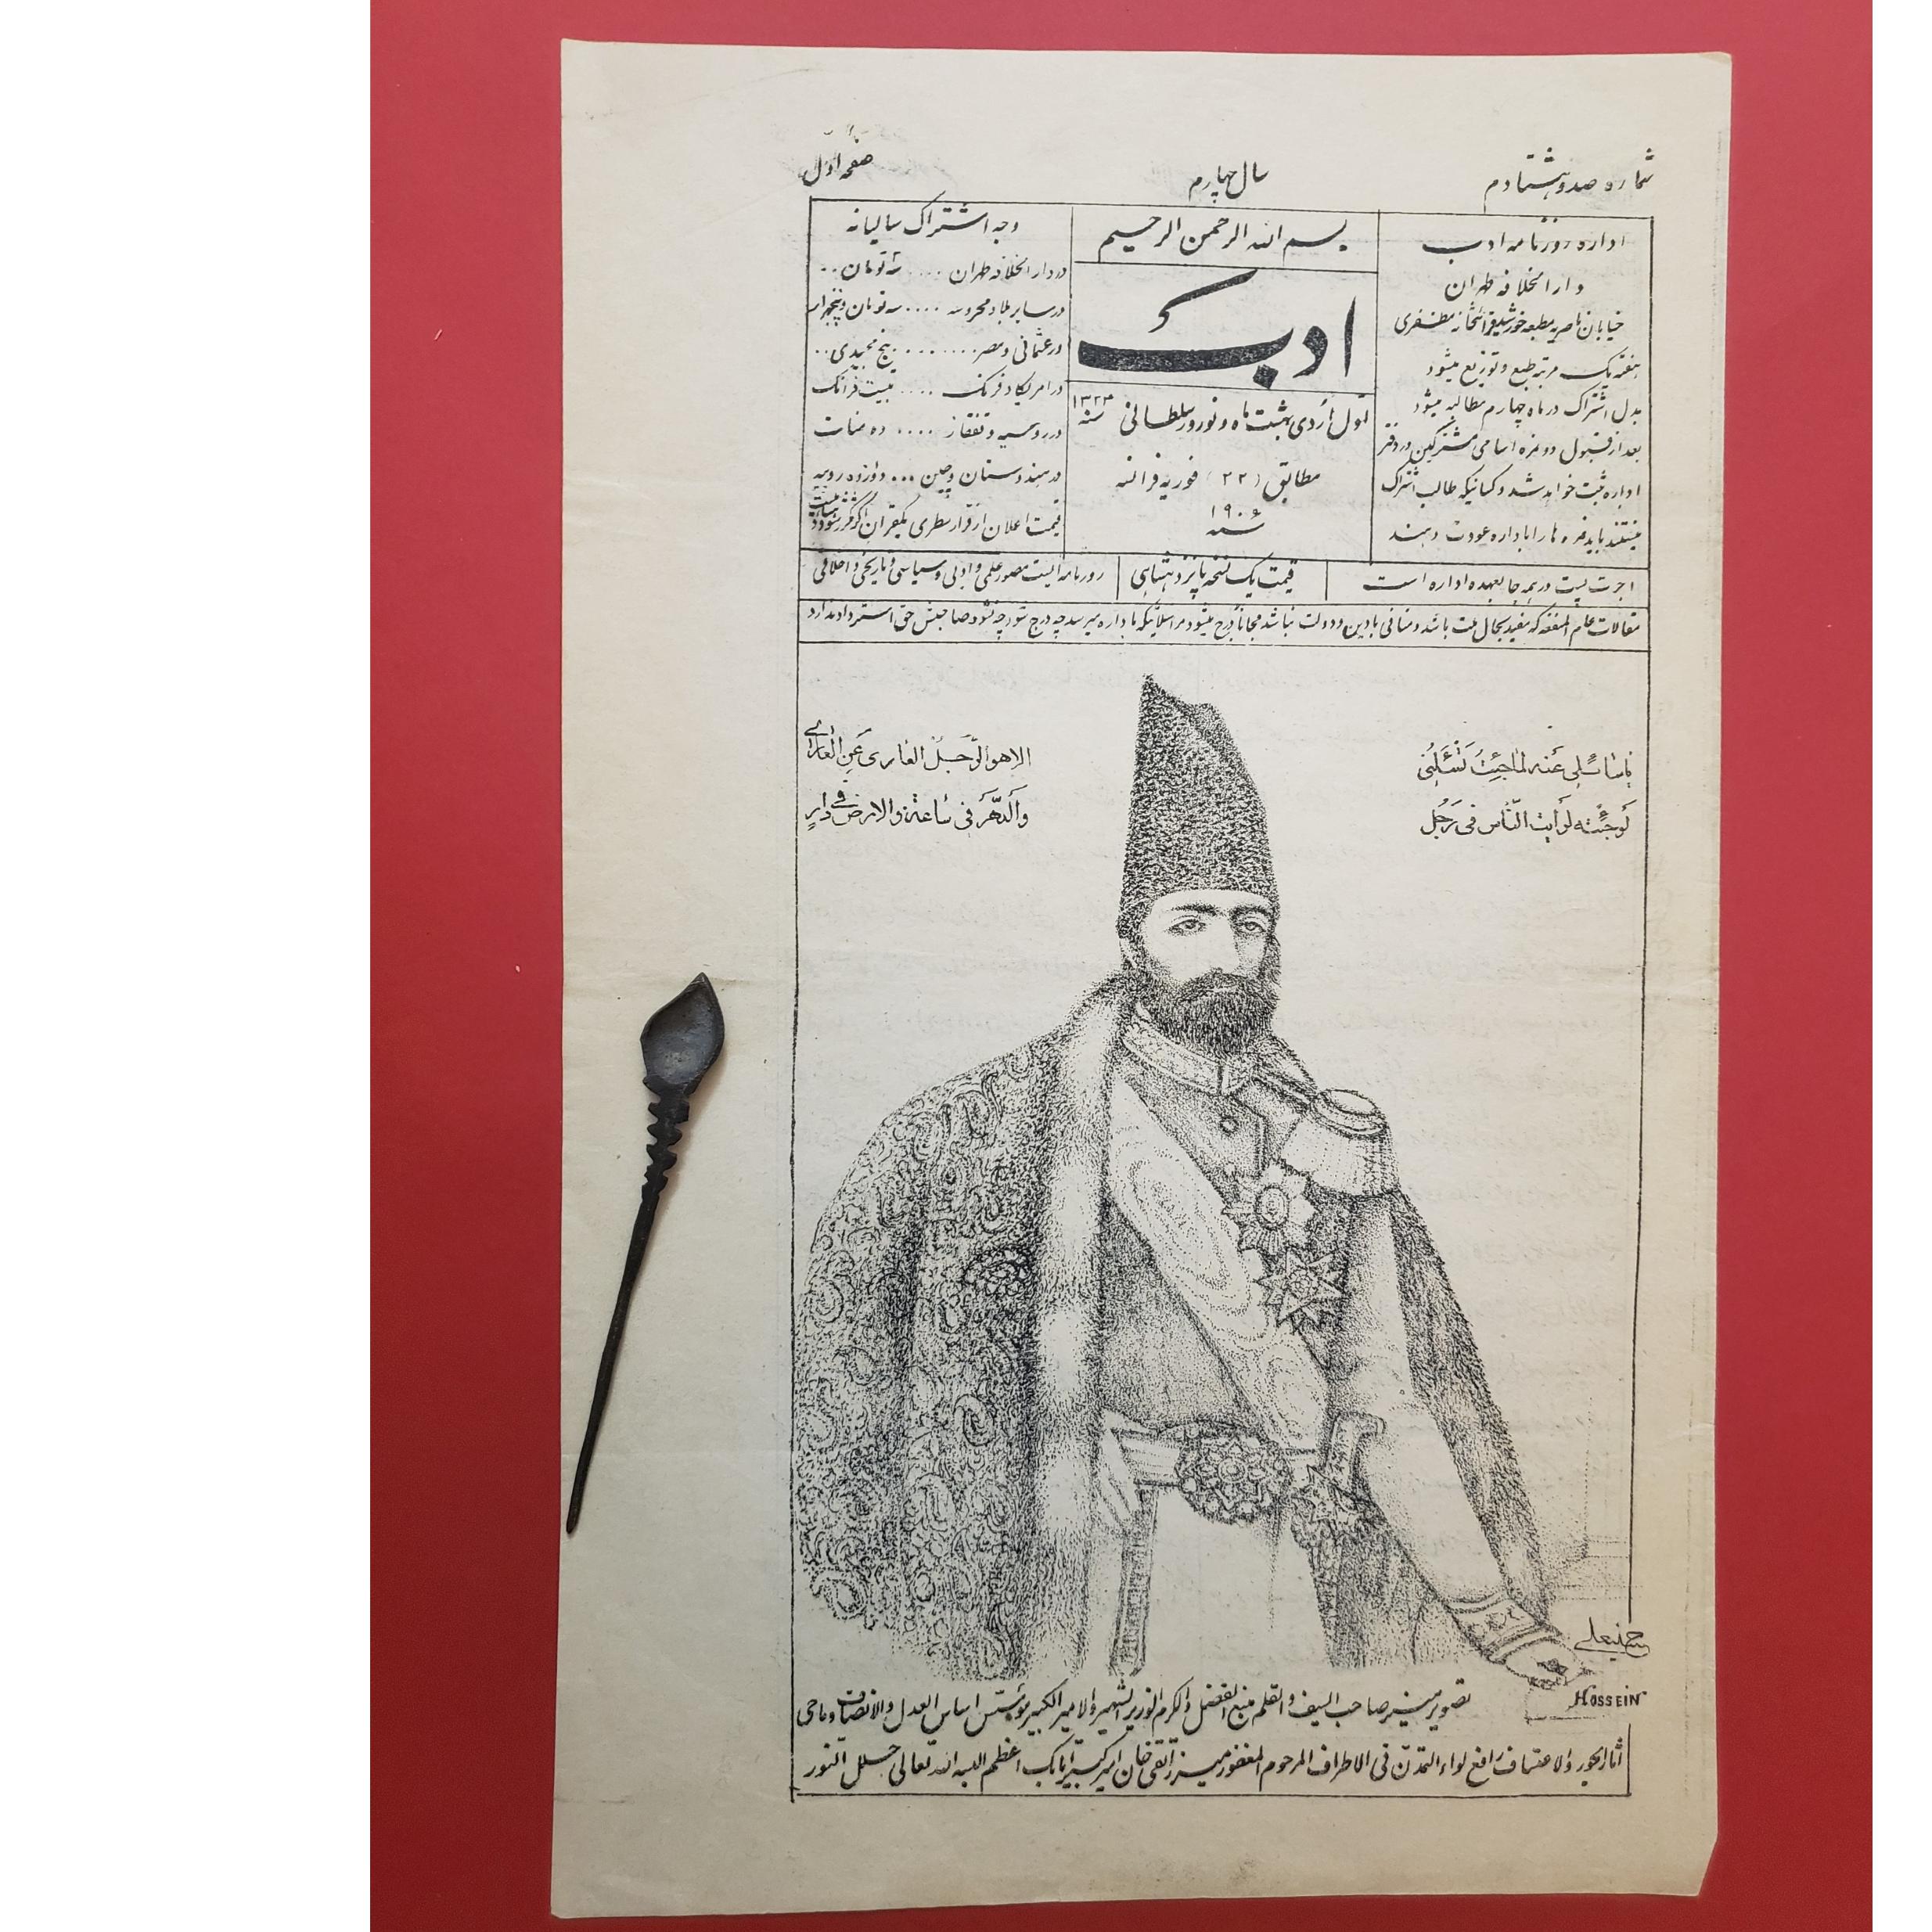 شماره صد و هشتادم
سال چهارم
صفحه اول
اداره روزنامه ادب
دارالخلافه طهران
خیابان ناصریه مطبعه خورشید قرائتخانه مظفری
هفته یک مرتبه طبع و توزیع میشود
بدل اشتراک در ماه چهارم مطالبه میشود
بعد از قبول دو نمره اسامی مشترکین در دفتر
اداره ثبت خواهد شد و کسانیکه طالب اشتراک
نیستند باید نمره ها را باداره عودت دهند
بسم الله الرحمن الرحیم
ادب
اول اردی بهشت ماه و نوروز سلطانی سنه ۱۳۲۴
مطابق (۲۲) فوریه فرانسه
سنه ۱۹۰۶
وجه اشتراک سالیانه
در دارالخلافه طهران .... سه تومان ..
در سایر بلاد محروسه .... سه تومان و پنجهزار
در عثمانی و مصر ........ پنج مجیدی ..
در امریکا و فرنگ .... بیست فرانک
در روسیه و قفقاز .... ده منات
در هندوستان و چین ... دوازده روپیه
قیمت اعلان از قرار سطری یکقران اگر مکرر شود
اجرت پست در همه جا بعهده اداره است
قیمت یک نسخه پانزده شاهی
روزنامه ایست مصور علمی و ادبی و سیاسی و تاریخی و اخلاقی
مقالات عام المنفعه که مفید بحال ملت باشد و منافی با دین و دولت نباشد مجاناً درج میشود مراسلاتیکه باداره میرسد چه درج شود چه نشود صاحبش حق استرداد ندارد
یا سائلی عنه لما جئت تسئلنی
الا هو الرجل العاری عن العار
لو جئته لرایت الناس فی رجل
والدهر فی ساعة والارض فی دار
حسینعلی
HOSSEIN
تصویر منیر صاحب السیف و القلم منبع الفضل و الکرم الوزیر الشهیر والامیر الکبیر مؤسس اساس العدل والانصاف و ماحی
آثار الجور والاعتساف رافع لواء التمدن فی الاطراف المرحوم المغفور میرزا تقی خان امیرکبیر اتابک اعظم البسه الله تعالی حلل النور